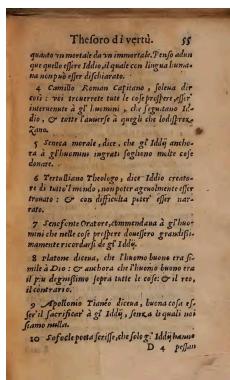 Thesoro di vertù. 55
quanto vn mortale da vn immortale. Penso adun
que quello essere Iddio, il quale con lingua huma-
na non può esser dischiarato.
4 Camillo Roman Capitano, soleua dir
così: voi trouerrete tute le cose prospere, esser'
interuenute à gl' huomini, che seguitano Id-
dio, & tutte l'auuerse à quegli che lo disprez-
zano.
5 Seneca morale, dice, che gl' Iddij ancho-
ra à gl'huomini ingrati sogliono molte cose
donare.
6 Tertulliano Theologo, dice Iddio creato-
re di tutto'l mondo, non poter ageuolmente esser
trouato: & con difficulta poter' esser nar-
rato.
7 Senofonte Oratore, commendaua à gl'huo-
mini che nelle cose prospere douessero grandissi-
mamente ricordarsi de gl' Iddij.
8 Platone diceua, che l'huomo buono era si-
mile à Dio: & anchora che l'huomo buono era
il piu degnissimo sopra tutte le cose: & il reo,
il contrario.
9 Apollonio Tianéo diceua, buona cosa es-
ser' il sacrificar' à gl' Iddij, senza li quali noi
siamo nulla.
10 Sofocle poeta scrisse, che solo gl' Iddij hanno
D 4 possan